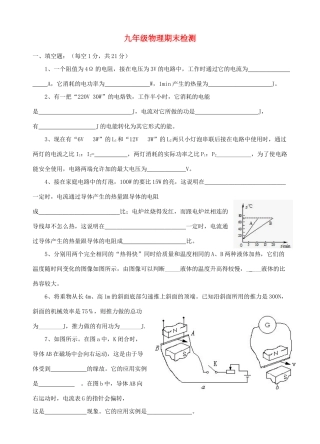 九年级物理期末检测
一、填空题:(每空1分,共21分)
1、一个阻值为4Ω的电阻,接在电压为3V的电路中。工作时通过它的电流为
A,它消耗的电功率为 W,1min产生的热量为 J。
2、有一把"220V 30W"的电烙铁,工作半小时,它消耗的电能
是 J,电流对它所做的功是 J,有
J的电能转化为其它形式的能。
3、现在有"6V 3W"的L₁和"12V 3W"的L₂两只小灯泡串联后接在电路中使用时,通过
两灯的电流之比I₁:I₂= ,两灯消耗的实际功率之比P₁:P₂ ,为了使电路
能安全使用,电路两端允许加的最大电压为 V。
4、接在家庭电路中的灯泡,100W的要比15W的亮,这说明在
一定时,电流通过导体产生的热量跟导体的电阻
成 比;电炉丝烧得发红,而跟电炉丝相连的
导线却不怎么热,这说明在 一定时,电流通
过导体产生的热量跟导体的电阻成 比。
5、分别用两个完全相同的"热得快"同时给质量和温度相同的A、B两种液体加热,它们
的温度随时间变化的图像如图所示,由图像可以判断 液体的温度升高得较慢, 液体的比
热容较大。
6、将重物从长4m、高1m的斜面底部匀速推上斜面的顶端。已知沿斜面所用的推力是300N,
斜面的机械效率是75%,则推力做的总功
为 J,推力做的有用功为 J。
7、如图所示,在图a中,K闭合时,
导体AB在磁场中会向右运动,这是由于导
体受到 的缘故。它的应用实例
是 。在图b中,导体AB向
右运动时,电流表G的指针会偏转,
这是 现象。它的应用实例是 。
t/℃
A
B
N
S
K
a
G
N
S
b